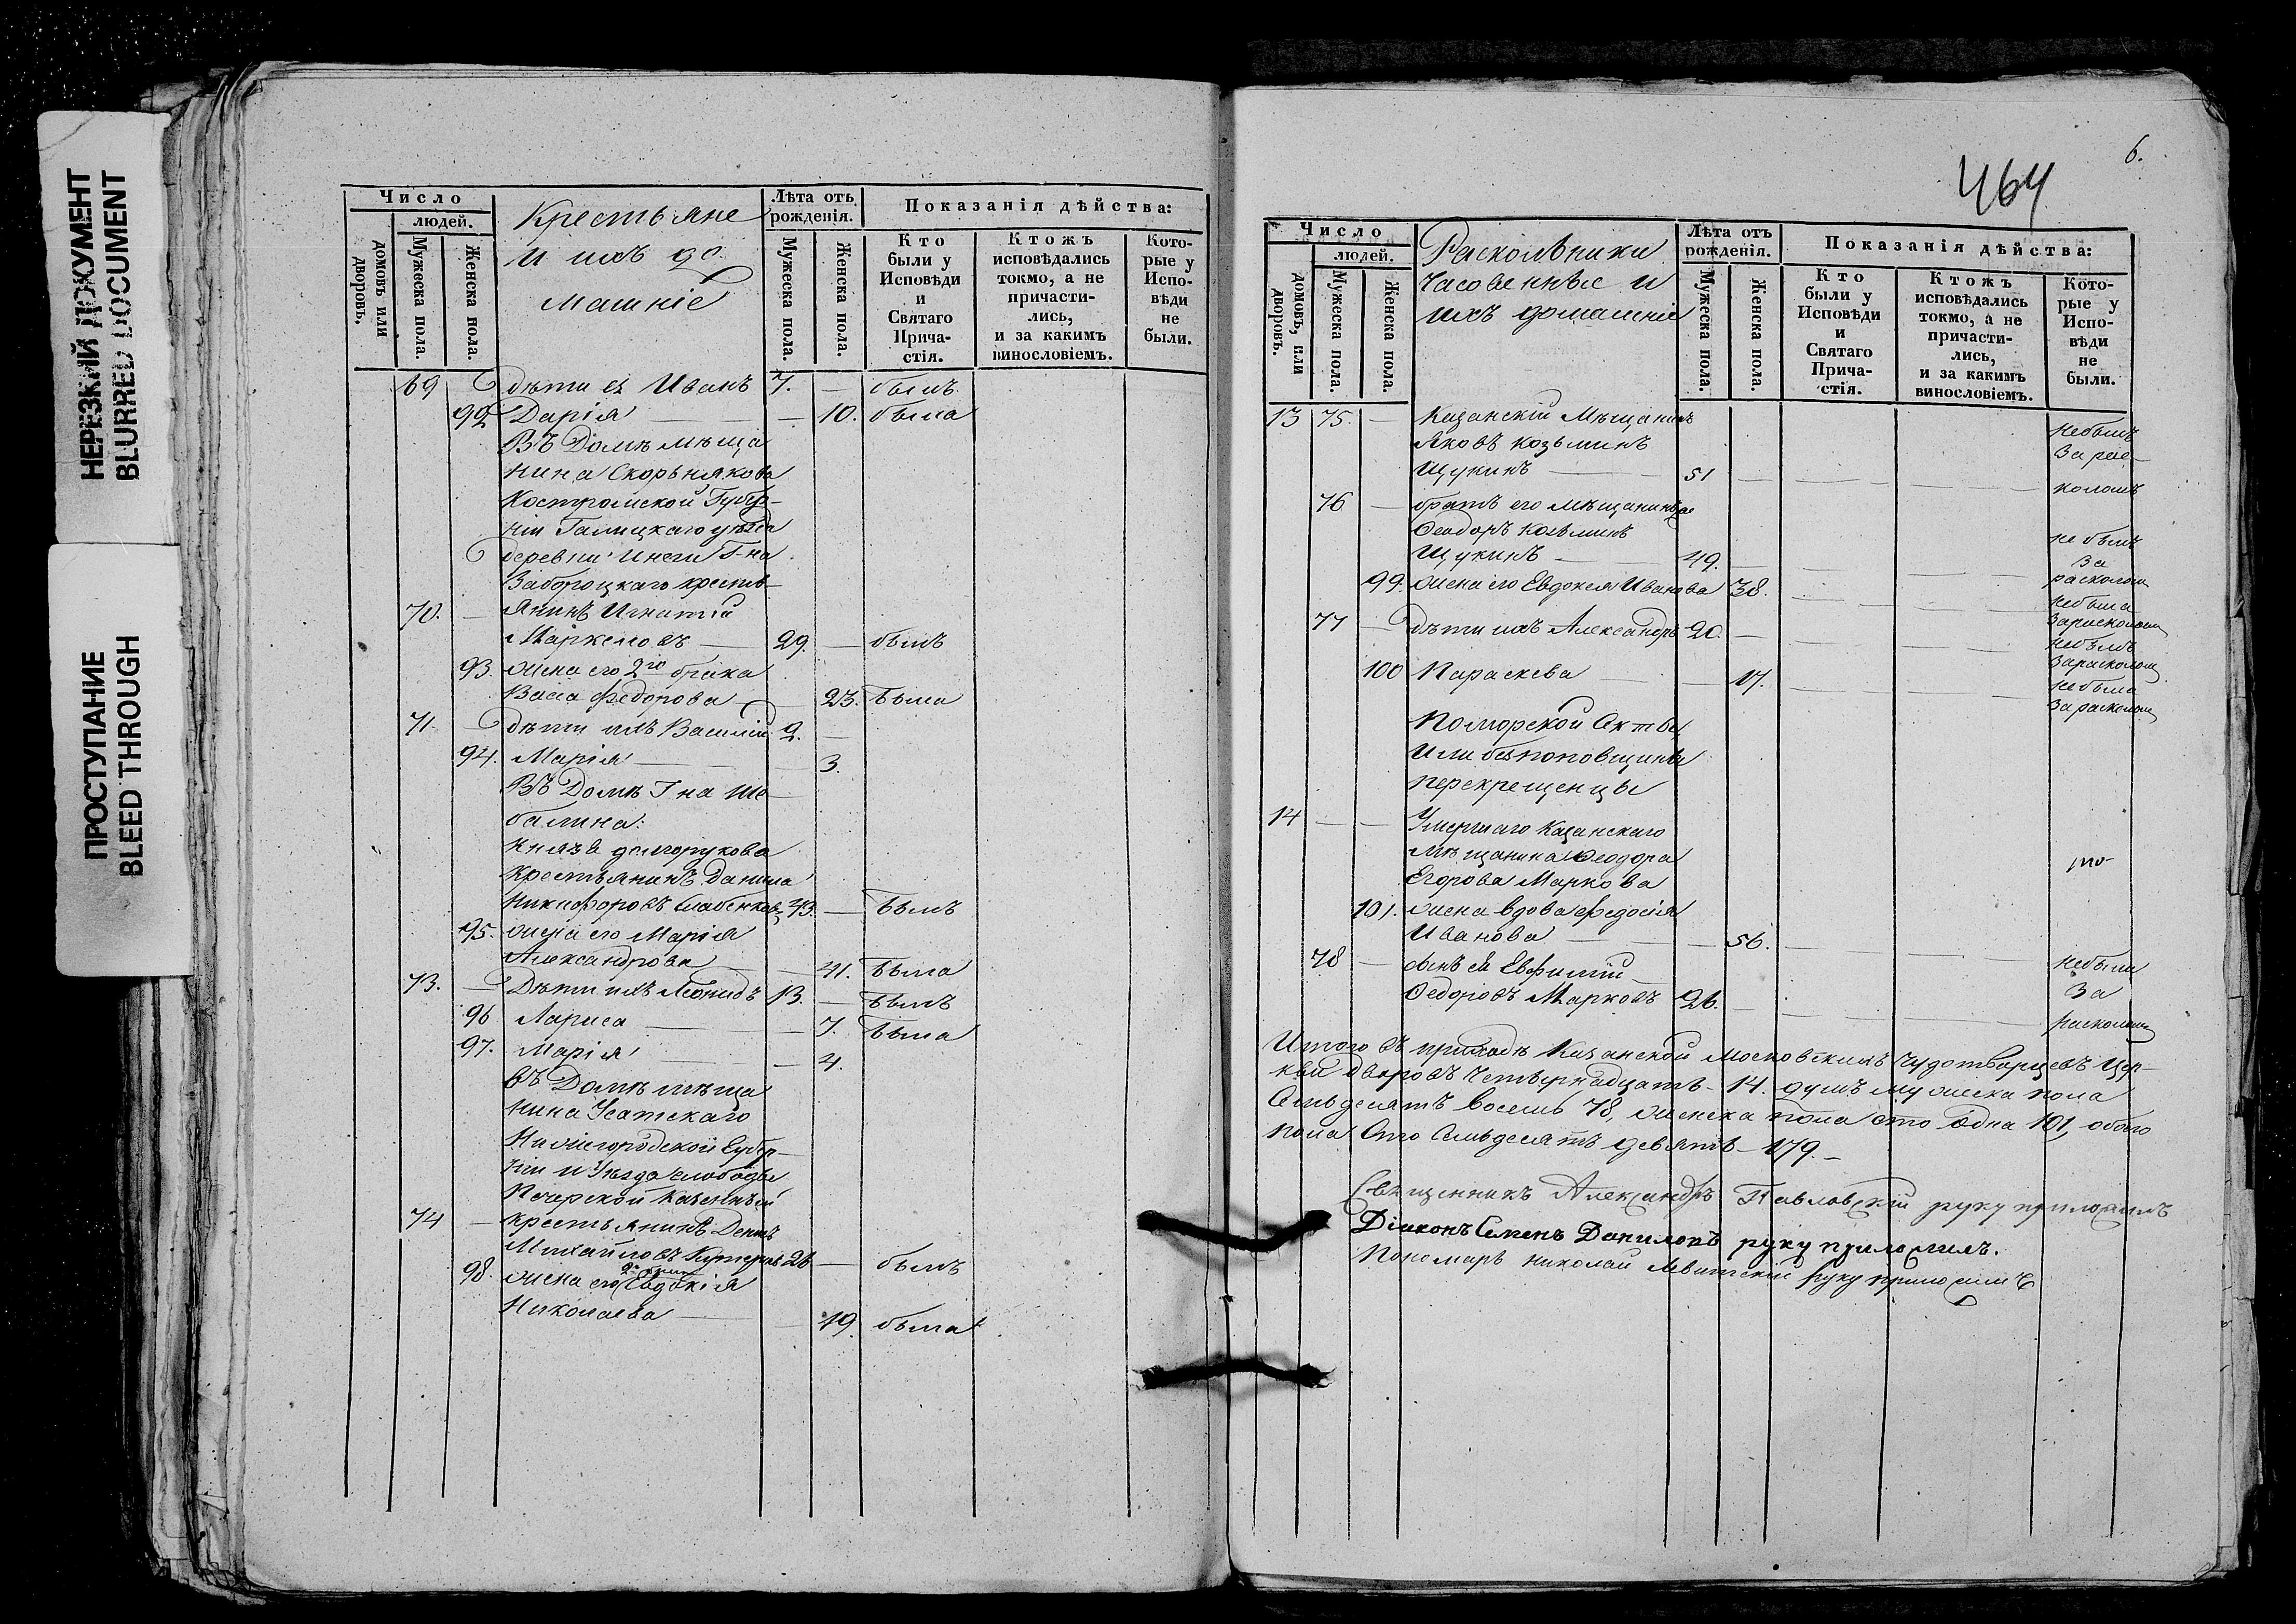 НЕРЕЗКИЙ ДОКУМЕНТ
BLURRED DOCUMENT
ПРОСТУПАНИЕ
BLEED THROUGH
Число
людей.
домовъ или дворовъ.
Мужеска пола.
Женска пола.
Крестьяне
и ихъ до
машніе
Лѣта отъ рожденія.
Мужеска пола.
Женска пола.
Показанія дѣйства:
Кто были у Исповѣди и Святаго Прича-стія.
Ктожъ исповѣдались токмо, а не причасти-лись, и за какимъ винословіемъ.
Кото-рые у Испо-вѣди не были.
69 дѣти ея Иванъ 7. — былъ
92 Дарія — — 10. была
Въ Домѣ мѣща
нина Скорнякова
Костромской Губер-
ніи Галицкаго уѣзда
деревни Г-на
крестъ-
70. — янинъ Игнатій
Маркеловъ — 29. — былъ
93. жена его 2го брака
Васса Федорова — 23. была
71. — дѣти ихъ Василій 2. —
94. Марія — — 3.
Въ Домѣ Г на Ше
балина:
Князя долгорукова
Крестьянинъ Данила
Никифоровъ 43. — былъ
95. жена его Марія
Александрова — 41. была
73. — Дѣти ихъ Леонидъ 13. — былъ
96 Лариса — — 7. была
97. Марія — — 4.
въ Домѣ мѣща
нина Усатскаго
Нижегородской Губер-
ніи и Уѣзда слободы
Печерской Казенный
74 — крестьянинъ
Михайловъ 26 — былъ
98. жена его Евдокія
Николаева — 19. была
6.
464
Число
людей.
домовъ, или дворовъ.
Мужеска пола.
Женска пола.
Раскольники
Часовенные и
ихъ домашніе
Лѣта отъ рожденія.
Мужеска пола.
Женска пола.
Показанія дѣйства:
Кто были у Исповѣди и Святаго Прича-стія.
Ктожъ исповѣдались токмо, а не причасти-лись, и за какимъ винословіемъ.
Кото-рые у Испо-вѣди не были.
13 75. — Казанскій Мѣщанинъ небылъ
Яковъ Козьминъ За рас-
Щукинъ — 51 — коломъ
76 — братъ его мѣщанинъ
Феодоръ Козьминъ не былъ
Щукинъ — 49. — За
99. жена его Евдокея Иванова 38. расколом
небыла
За расколом
77 — дѣти ихъ Александръ 20. — небылъ
За расколом
100 Параскева — — 17. небыла
За расколом
Поморской Секты
Или безпоповщины
перекрещенцы
14 — — Умершаго Казанскаго
мѣщанина Феодора
Егорова Маркова
101. жена вдова Федосія
Иванова — — 56. —
78 — сынъ ея Евфимій небыли
Федоровъ Марковъ 26. За
расколом
Итого въ приходѣ Казанской Московскихъ Чудотворцевъ Цер-
кви дворовъ Четырнадцать - 14. душъ мужеска пола
Семьдесятъ восемь 78, женска пола сто одна 101, обоего
пола Сто Семьдесятъ девять - 179. -
Священникъ Александръ Павловскій руку приложилъ
Діаконъ Семенъ Даниловъ руку приложилъ.
Пономарь Николай руку приложилъ